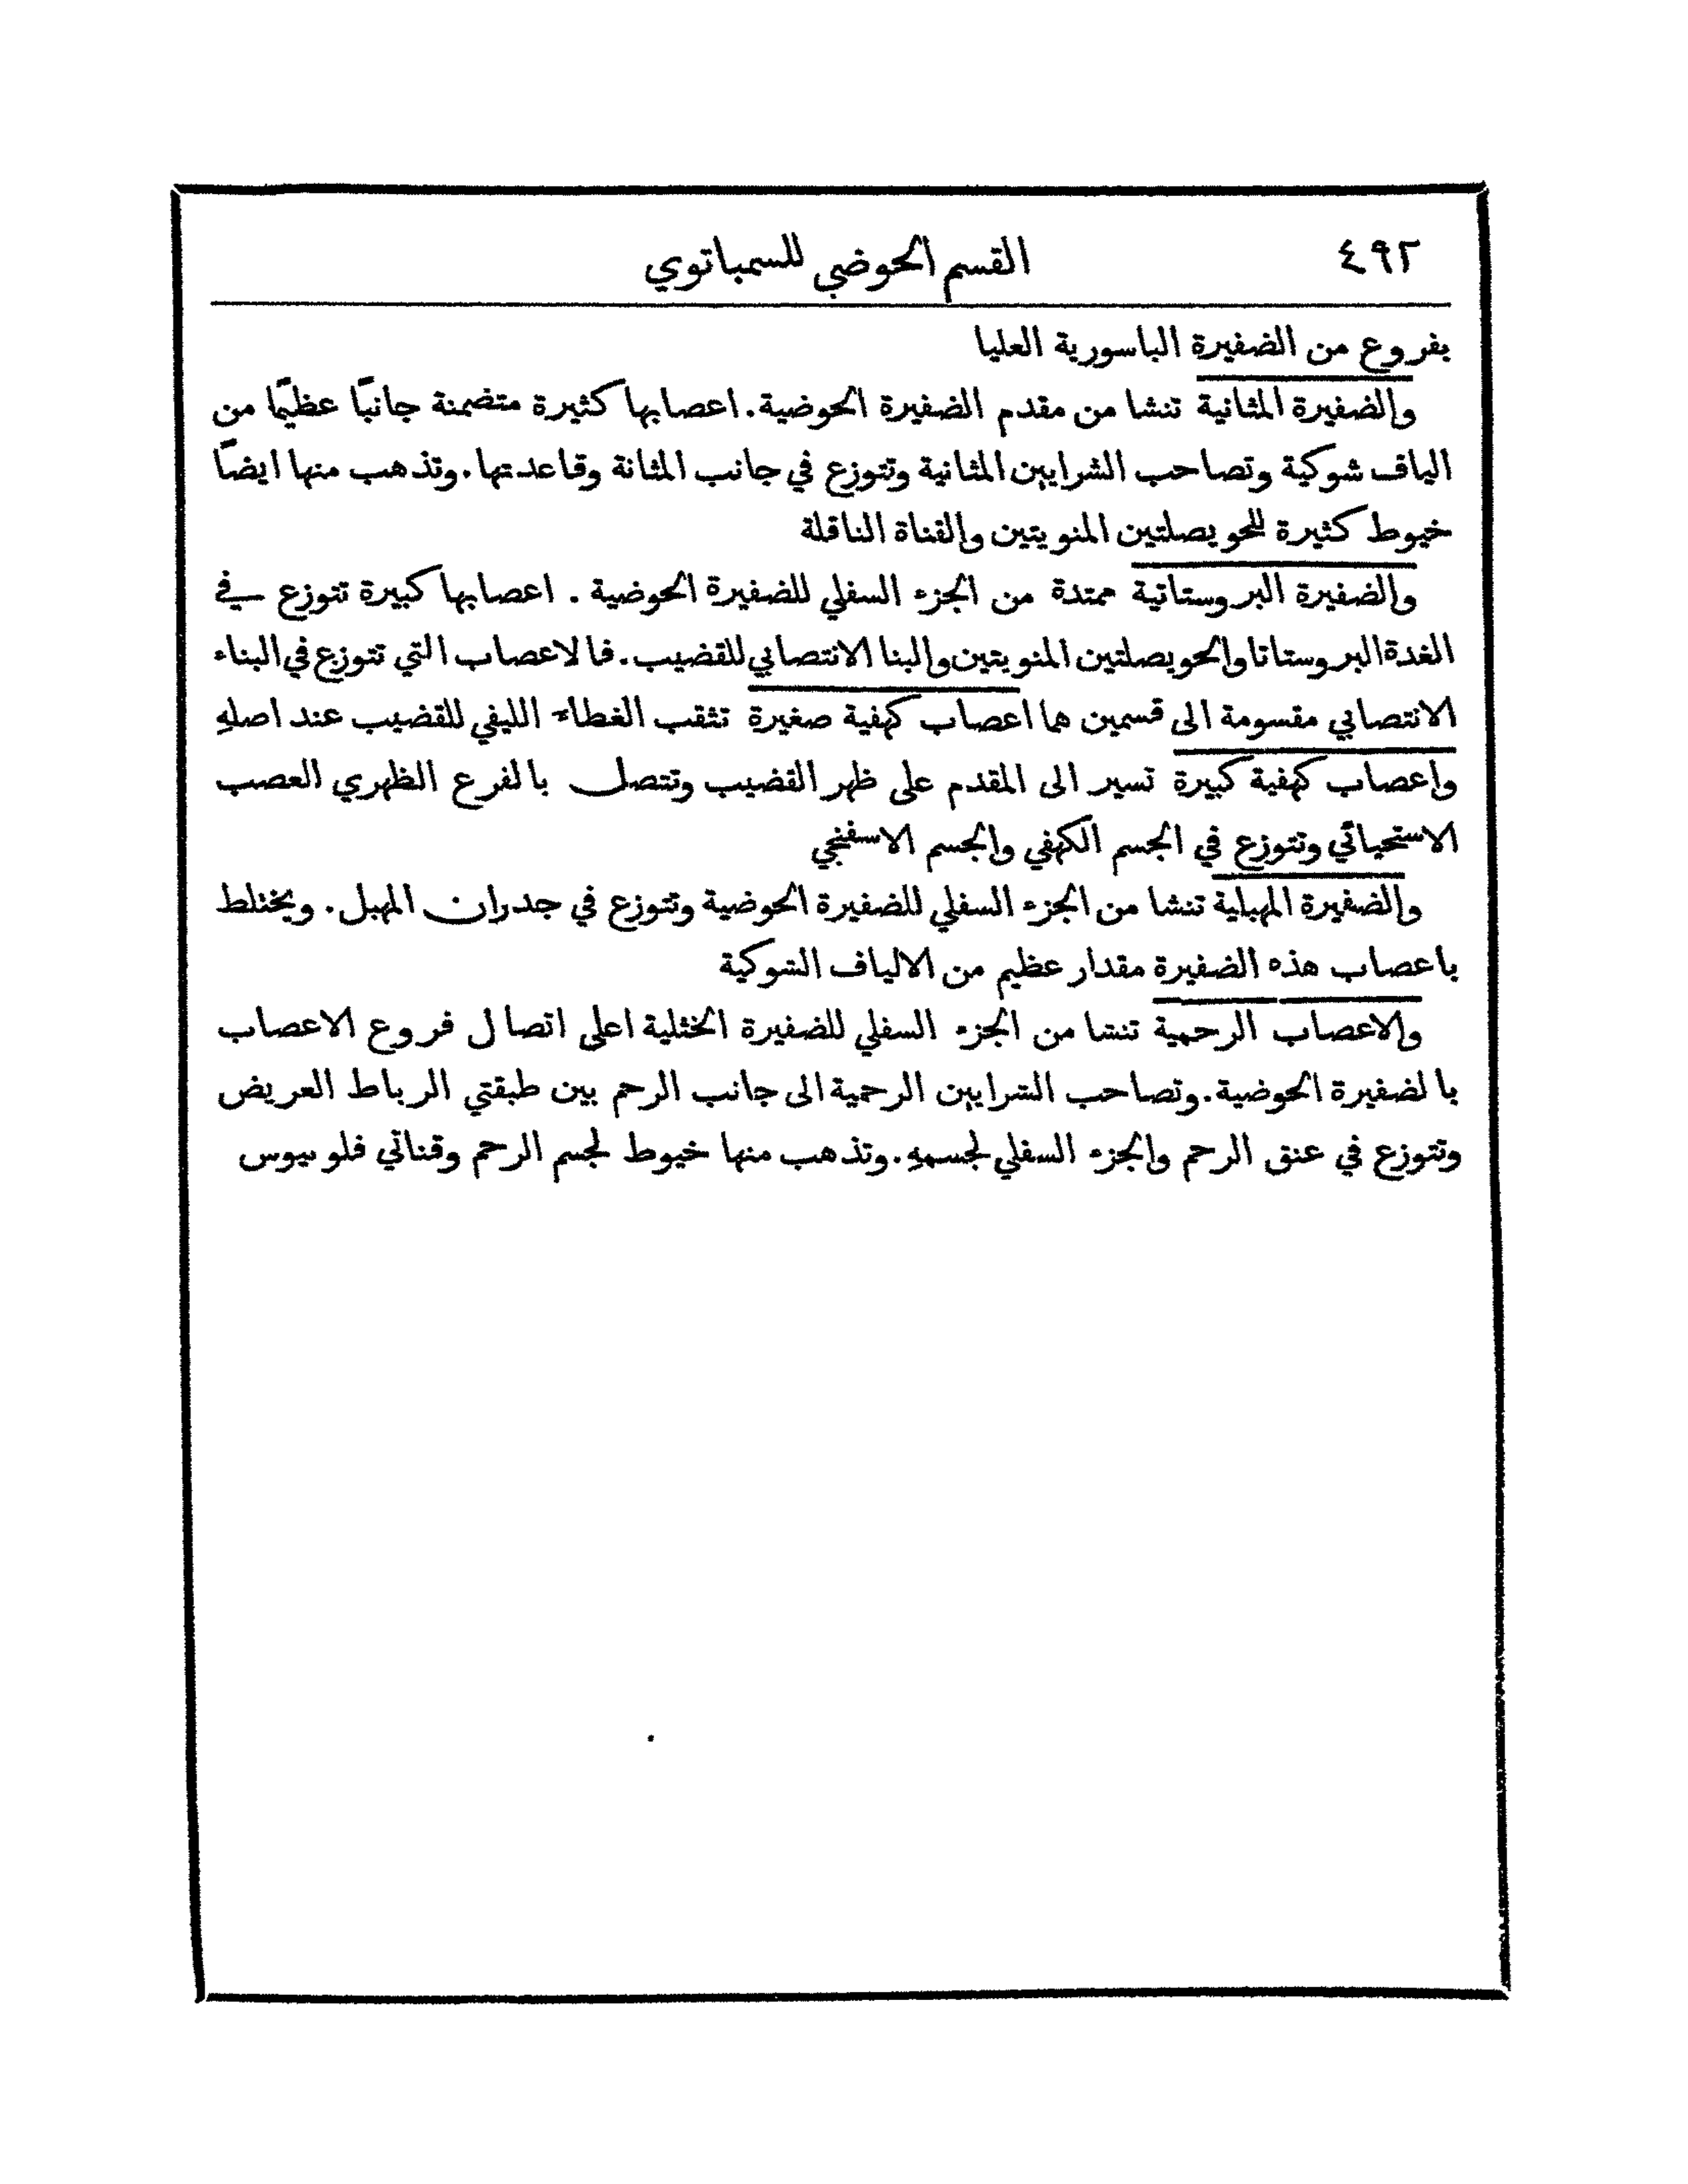 ٤٩٢ القسم الحوضي للسمباتوي
بفروع من الضفيرة الباسورية العليا
والضفيرة المثانية تنشا من مقدم الضفيرة الحوضية. اعصابها كثيرة متضمنة جانبًا عظيمًا من
الياف شوكية وتصاحب الشرايين المثانية وتتوزع في جانب المثانة وقاعدتها. وتذهب منها ايضًا
خيوط كثيرة للحويصلتين المنويتين والقناة الناقلة
والضفيرة البروستاتية ممتدة من الجزء السفلي للضفيرة الحوضية. اعصابها كبيرة تتوزع في
الغدة البروستاتا والحويصلتين المنويتين والبنا الانتصابي للقضيب. فالاعصاب التي تتوزع في البناء
الانتصابي مقسومة الى قسمين هما اعصاب كهفية صغيرة تثقب الغطاء الليفي للقضيب عند اصلهِ
واعصاب كهفية كبيرة تسير الى المقدم على ظهر القضيب وتتصل بالفرع الظهري العصب
الاستحيائي وتتوزع في الجسم الكهفي والجسم الاسفنجي
والضفيرة المهبلية تنشا من الجزء السفلي للضفيرة الحوضية وتتوزع في جدران المهبل. ويختلط
باعصاب هذه الضفيرة مقدار عظيم من الالياف الشوكية
والاعصاب الرحمية تنشا من الجزء السفلي للضفيرة الخثلية اعلى اتصال فروع الاعصاب
بالضفيرة الحوضية. وتصاحب الشرايين الرحمية الى جانب الرحم بين طبقتي الرباط العريض
وتتوزع في عنق الرحم والجزء السفلي لجسمهِ. وتذهب منها خيوط لجسم الرحم وقناتي فلوبيوس